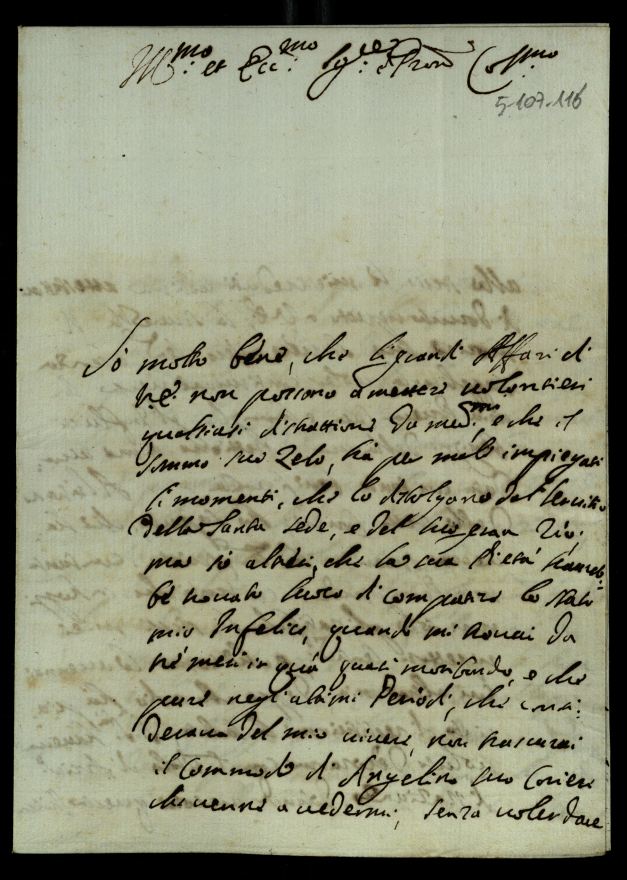 Ill.mo et Ecc.mo Sig.re e Pron Col.mo
5-107-116
Sò molto bene, che li grandi Affari di
V.E. non possono amettere volontieri
qualsiasi distrattione da med.mi, e che il
sommo suo Zelo, hà per male impiegati
li momenti, che lo distolgano dal servitio
della Santa Sede, e del suo gran Zio;
ma sò altresi, che la sua Pietà havreb:
be trovato luoco di compatire lo stato
mio Infelice, quando mi trovai da
trè mesi in quà quasi moribondo, e che
pure negl'ultimi Periodi, che consi:
deravo del mio vivere, non trascurai
il commodo di Angelino suo Coriere
che venne a vedermi, senza voler dare